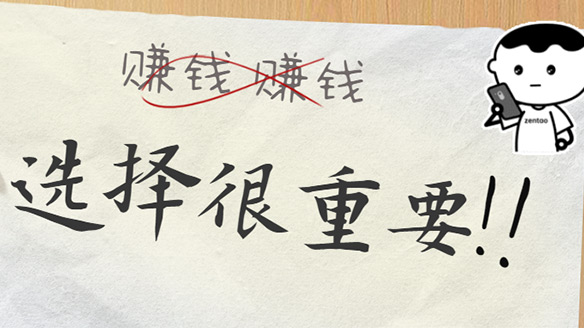 赚钱 赚钱
zentoo
选择很重要!!